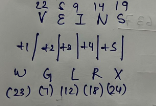 22 5 9 14 19
V E I N S
+1 | +2 | +3 | +4 | +5 |
W G L R X
(23) (7) (12) (18) (24)